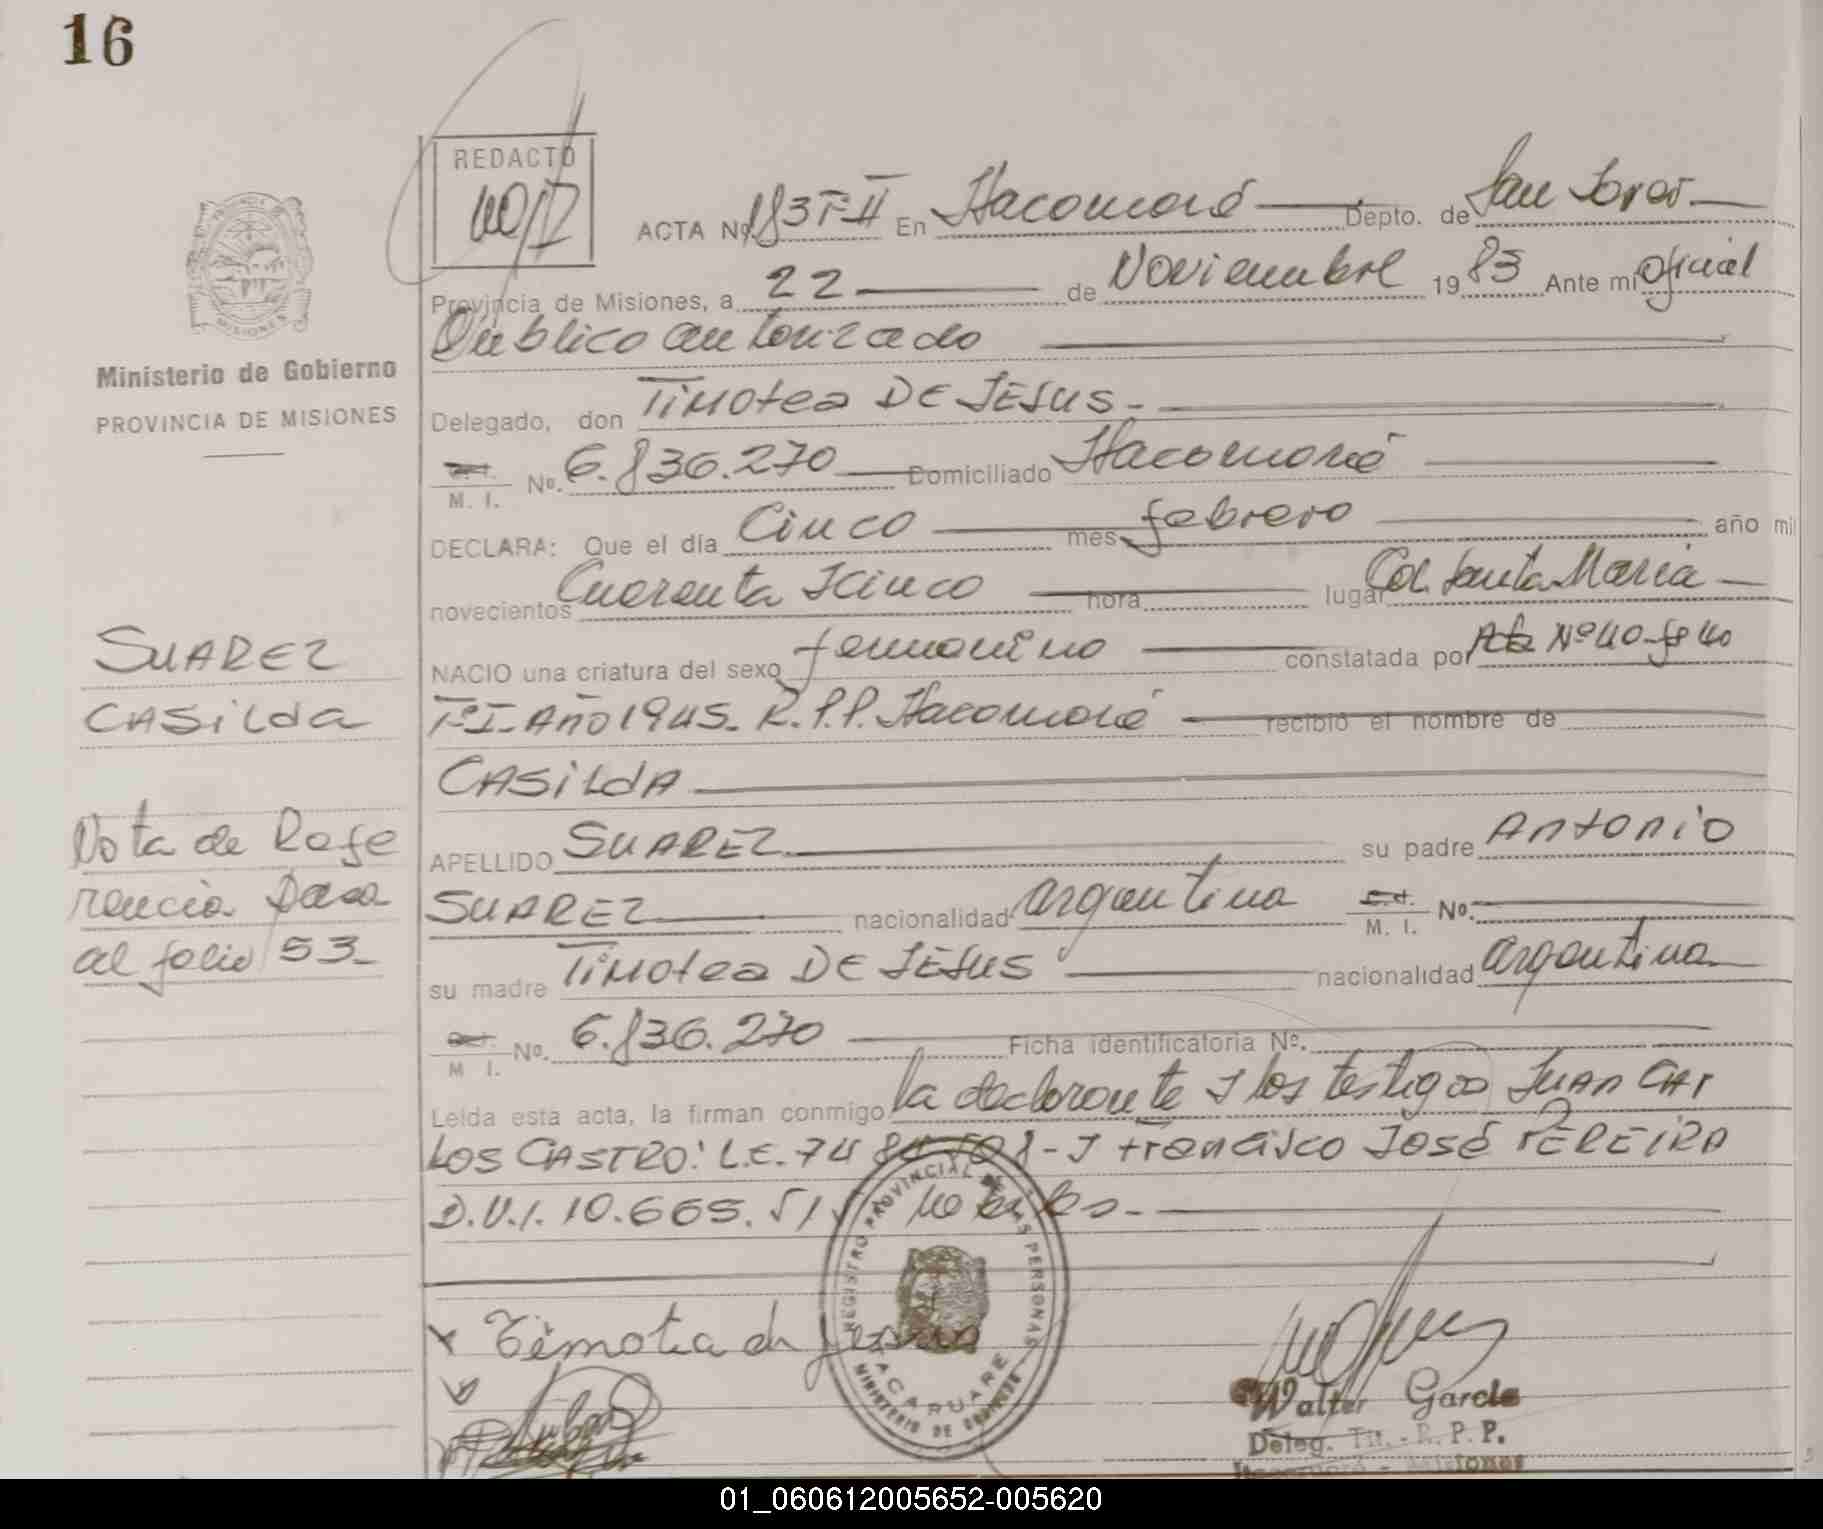 16
REDACTO
ACTA Nº 183 Tº II En Itacaruaré Depto. de San Javier
Provincia de Misiones, a 22 de Noviembre 1983 Ante mi oficial
Público autorizado
Delegado, don Timotea DE JESUS.-
M. I. Nº. 6.836.270 Domiciliado Itacaruaré
DECLARA: Que el día Cinco mes febrero año mil
novecientos Cuarenta y Cinco hora lugar Col. Santa María
NACIO una criatura del sexo femenino constatada por Acta Nº 40-fº 40
Tº I- Año 1945- R.P.P. Itacaruaré recibió el nombre de
CASILDA
APELLIDO SUAREZ su padre Antonio
SUAREZ nacionalidad argentina M. I. Nº.
su madre Timotea DE JESUS nacionalidad argentina
M I. Nº. 6.836.270 Ficha identificatoria Nº.
Leída esta acta, la firman conmigo la declarante y los testigos Juan CAR
LOS CASTRO: L.E. 7484508 - y Francisco José PEREIRA
D.N.I. 10.665.515
Timotea de Jesus
Walter Garcia
Deleg. Tit. - R. P. P.
Itacaruaré - Misiones
Ministerio de Gobierno
PROVINCIA DE MISIONES
SUAREZ
CASILda
Nota de Refe
rencia Pasa
al folio 53-
MISIONES
REGISTRO PROVINCIAL DE LAS PERSONAS
ITACARUARE
MINISTERIO DE GOBIERNO
01_060612005652-005620